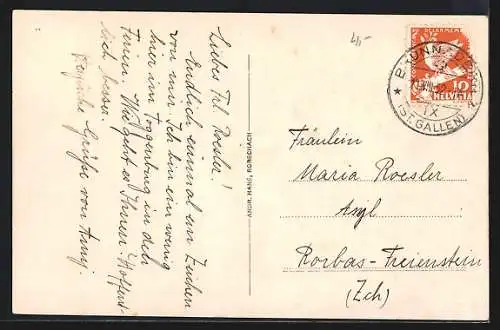 4,-
DÉSARMEM
BRUNNADERN
VIII.32
10
HELVETIA
IX
(ST. GALLEN)
Liebes Frl Roesler!
Endlich einmal ein Zeichen
von mir. Ich bin ein wenig
hier im Toggenburg in den
Ferien. Wie geht es Ihnen? Hoffent-
lich besser.
Grüße von Anny.
ANDR. HANE, RORSCHACH
Fräulein
Maria Roesler
Asyl
Rorbas-Freienstein
(Zch)